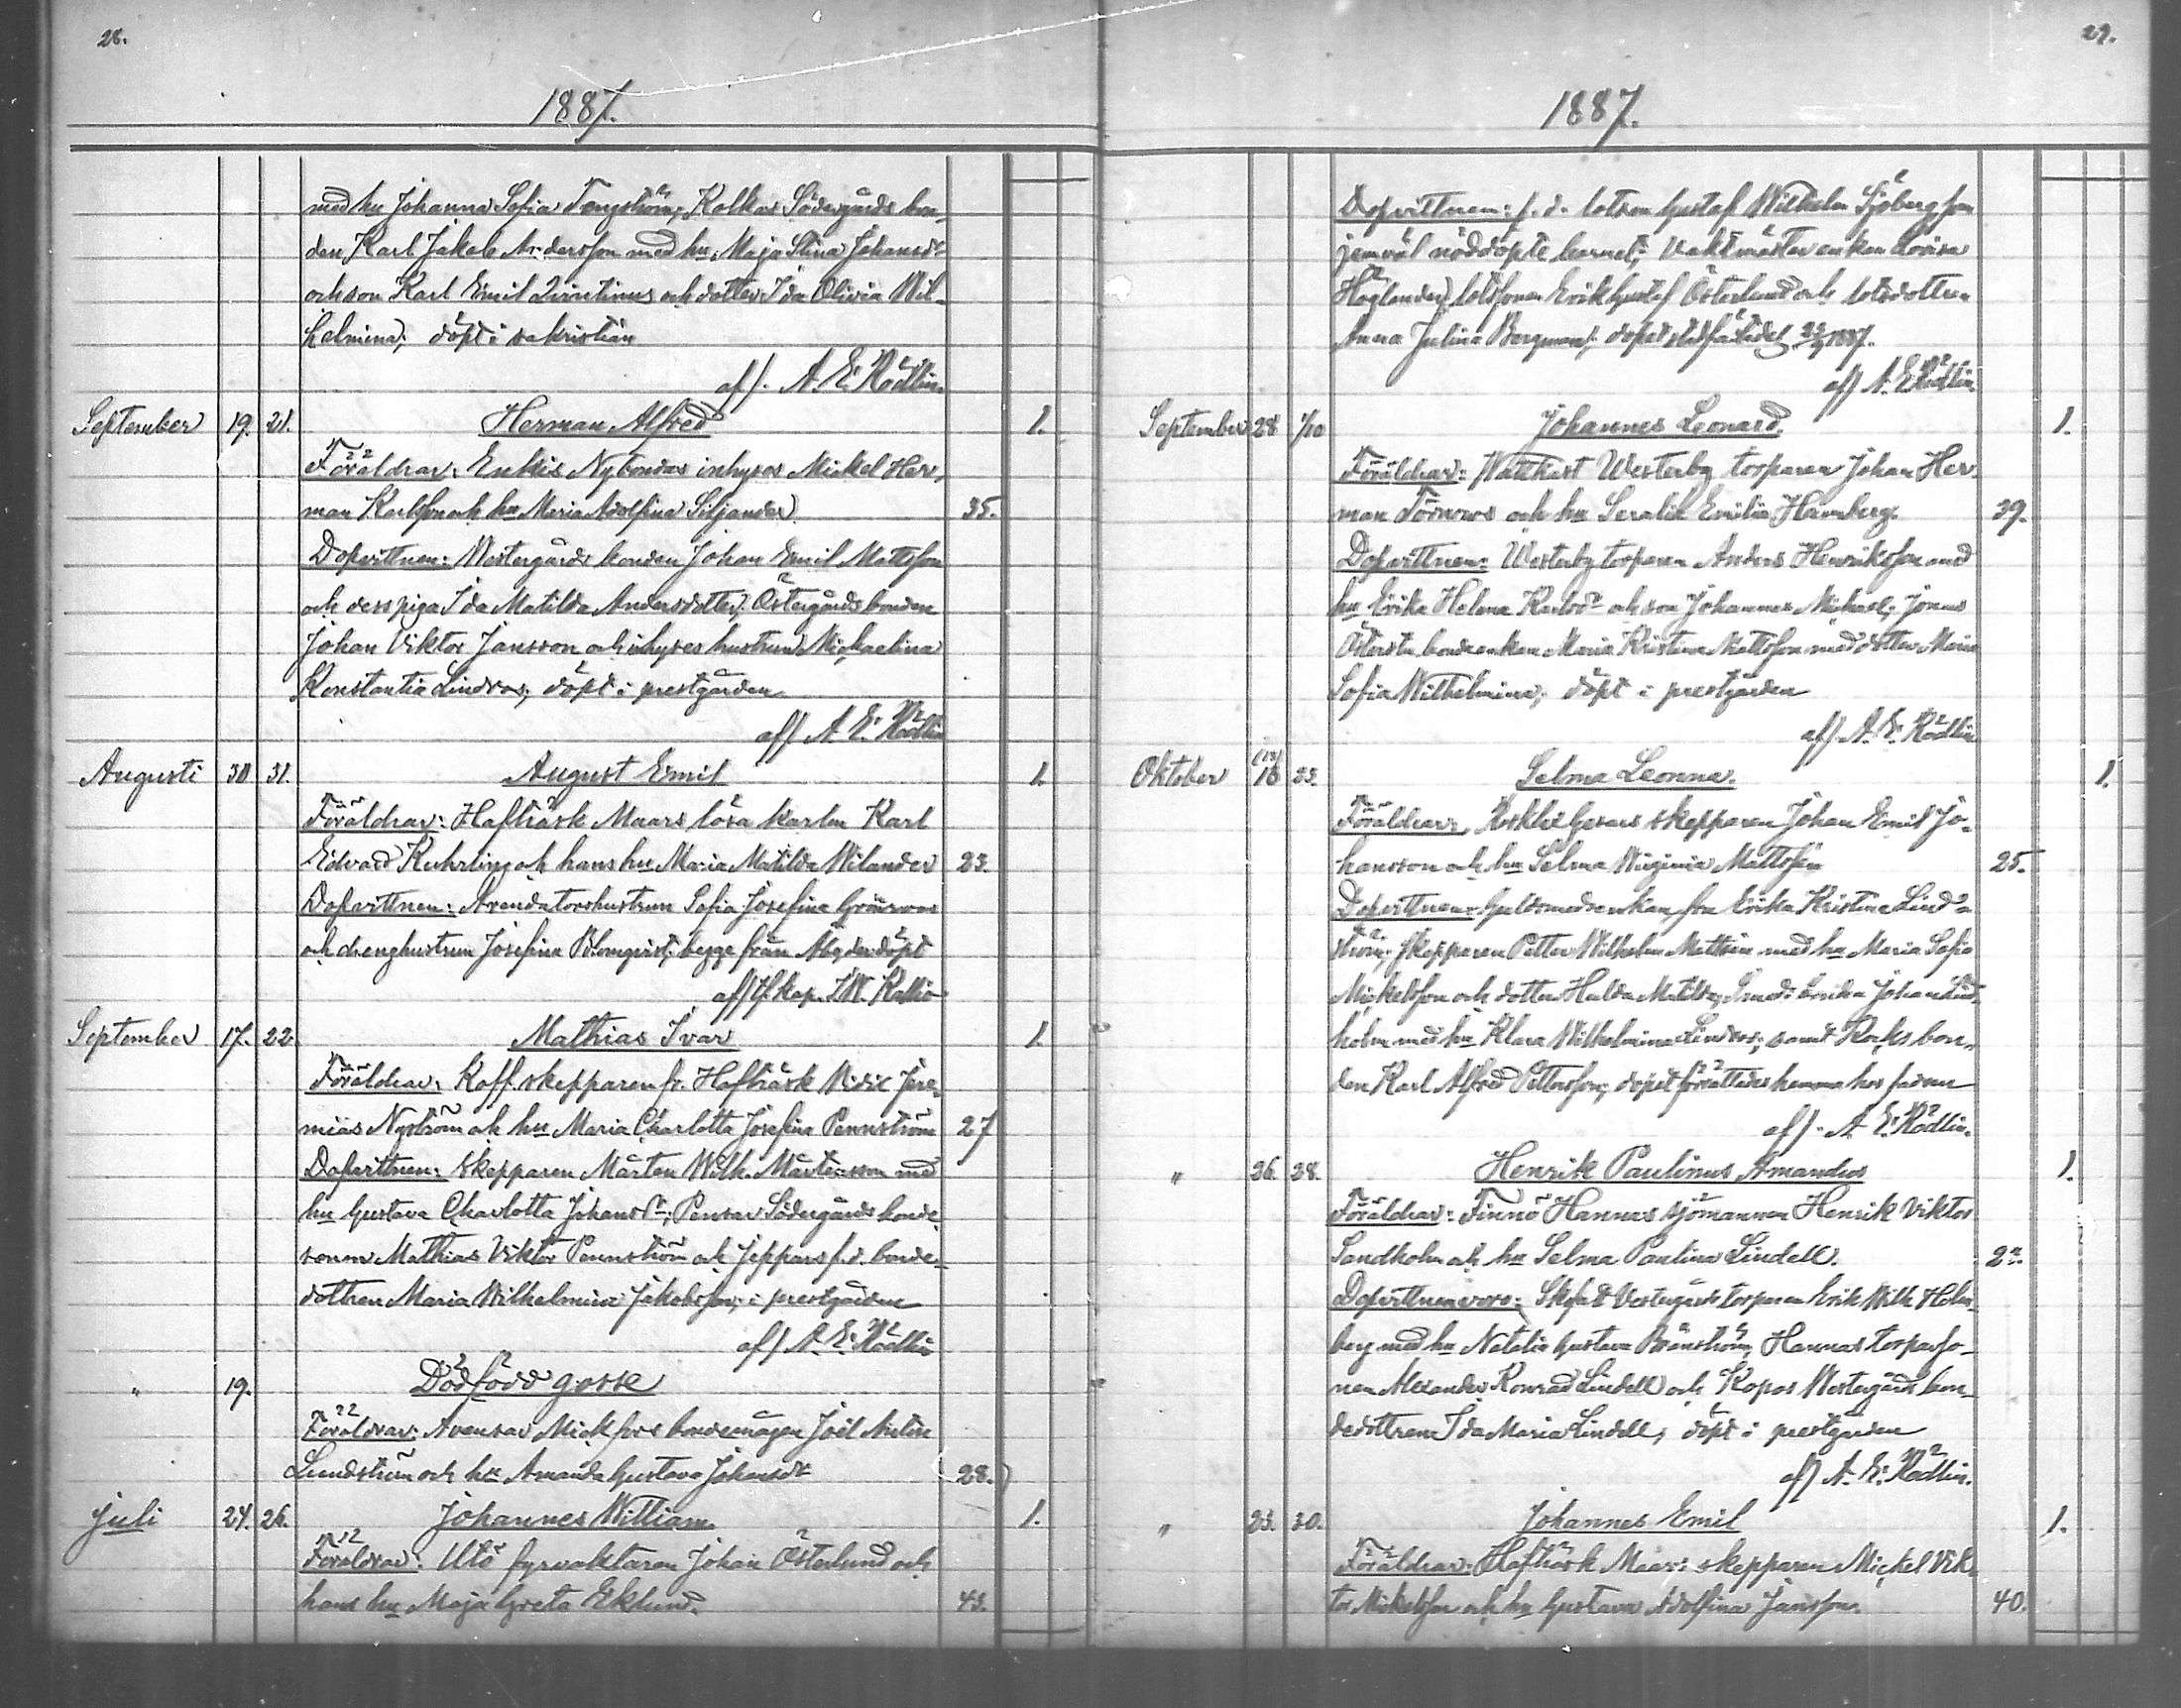 28.
1887.
med hu Johanna Sofia Tengström; Kalkas Södergårds bon-
den Karl Jakob Andersson med hu. Maja Stina Johansdr
och son Karl Emil och dotter Ida Olivia Wil-
helmina; döpt i sakristian
af/. A. E. Rödlin.
September 19. 21. Herman Alfred 1.
Föräldrar: Enkis Nybondas inhyses Mickel Her-
man Karlsson och hu Maria Adolfina Siljander 35.
Dopvittnen: Westergårds bonden Johan Emil Mattsson
och dess piga Ida Matilda Andersdotter; Östergårds bonden
Johan Viktor Jansson och inhyses hustrun Mickaelina
Konstantia Lindros; döpt i prestgården
af/ A. E. Rödlin
Augusti 30 31. August Emil 1.
Föräldrar: Hafträsk Maars lösa karlen Karl
Edvard Kuhrling och hans hu Maria Matilda Wilander 23.
Dopvittnen: Arendatorshustrun Sofia Josefina Grönroos
och drenghustrun Josefina Blomqvist; begge från Åbo der döpt
af/ kap. I W. Kallio
September 17. 22. Mathias Ivar 1.
Föräldrar: Koff. skepparen fr. Hafträsk Vidix Jere-
mias Nyström och hu Maria Charlotta Josefina Pennström 27
Dopvittnen: Skepparen Mårten Wilh. Mårtensson med
hu Gustava Charlotta Johansdr; Pensar Södergårds bonde-
sonen Mathias Viktor Pennström och Jeppars f.d. bonde-
dottren Maria Wilhelmina Jakobsson; i prestgården
af/ A. E. Rödlin
" 19. Dödfödd gosse
Föräldrar: Avensar Mickfors bondemågen Joel Anton
Lundström och hu Amanda Gustava Johansdr 28.
Juli 24. 26. Johannes William 1.
Föräldrar: Utö fyrvaktaren Johan Österlund och
hans hu Maja Greta Eklund. 43.
29.
1887.
Dopvittnen: f. d. lotsen Gustaf Wilhelm Sjöberg som
jemväl nöddöpte barnet; Vaktmästar enkan Lovisa
Höglander, lotssonen Erik Gustaf Österlund och lotsdottren
Anna Julina Bergman; dopet stadfästadt 1887.
af/ A. E. Rödlin.
September 28 1/10 Johannes Leonard. 1.
Föräldrar: Wattkast Westerby torparen Johan Her-
man Törnroos och hu Serafia Emilia Hamberg. 39.
Dopvittnen: Westerby torparen Anders Henriksson med
hu Erika Helena Karlsdr och son Johannes Michael; Jonas
bondeenkan Maria Kristina Mattsson med dotter Maria
Sofia Wilhelmina; döpt i prestgården
af/. A. E. Rödlin
Oktober (13) 16 23. Selma Leonna. 1.
Föräldrar: skepparen Johan Emil Jo-
hansson och hu Selma Virginia Mattsson 25.
Dopvittnen: Guldsmedsenkan fru Erika Kristina Lind-
ström; skepparen Petter Wilhelm Mattsson med hu Maria Sofia
Mickelsson och dotter Hulda Matilda; Smeds bonden Johan Lind-
holm med hu Klara Wilhelmina Lindros; samt Rocks bon-
den Karl Alfred Pettersson; dopet förrättades hemma hos fadren
af/. A. E. Rödlin.
" 26. 28. Henrik Paulinus Amandus 1.
Föräldrar: Finnö Hannas sjömannen Henrik Viktor
Sandholm och hu Selma Paulina Lindell.
Dopvittnen voro: Vestergårds torparen Erik Wilh. Holm-
berg med hu Natalia Gustava Brännström, Hannas torparso-
nen Alexander Konrad Lindell och Kopos Westergårds bon-
dedottren Ida Maria Lindell; döpt i prestgården
af/ A. E. Rödlin.
" 23. 30. Johannes Emil 1.
Föräldrar: Hafträsk Maars skepparen Mickel Vik-
tor Mickelsson och hu Gustava Adolfina Jansson. 40.